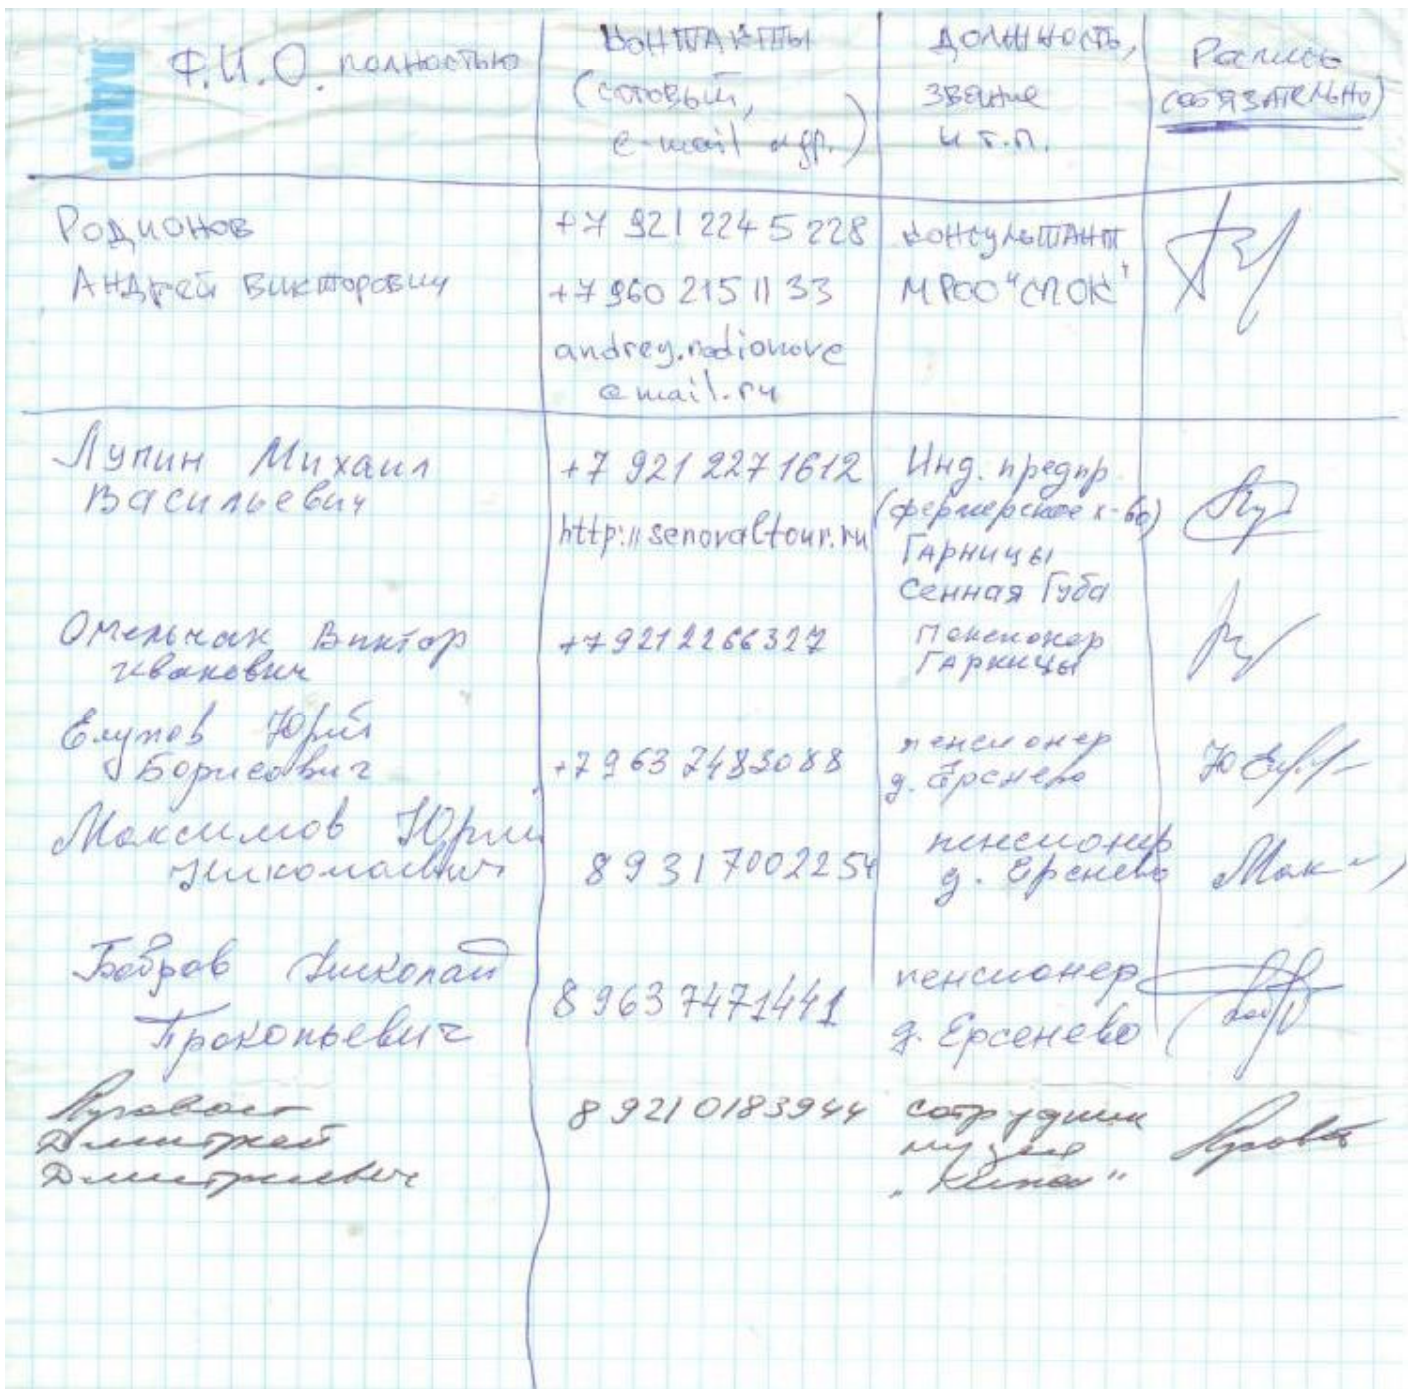 ЛДПР
Ф.И.О. полностью
контакты
(сотовый,
e-mail и др.)
должность,
звание
и т.п.
Роспись
(обязательно)
Родионов
Андрей Викторович
+7 921 224 5 228
+7 960 215 11 33
andrey.rodionove
@mail.ru
консультант
МРОО "СПОК"
Лупин Михаил
Васильевич
+7 921 227 1612
http://senovaltour.ru
Инд. предпр.
(фермерское х-во)
Гарницы
Сенная Губа
Омельчак Виктор
Иванович
+79212266327
Пенсионер
Гарницы
Елупов Юрий
Борисович
+7963 2483088
пенсионер
д. Ерснево
Максимов Юрий
Николаевич
89317002254
пенсионер
д. Ерснево
Мак
Бобров Николай
Прокопьевич
89637471441
пенсионер
д. Ерсенево
Дмитрий
Дмитриевич
8 9210183944
сотрудник
музея
"Кижи"